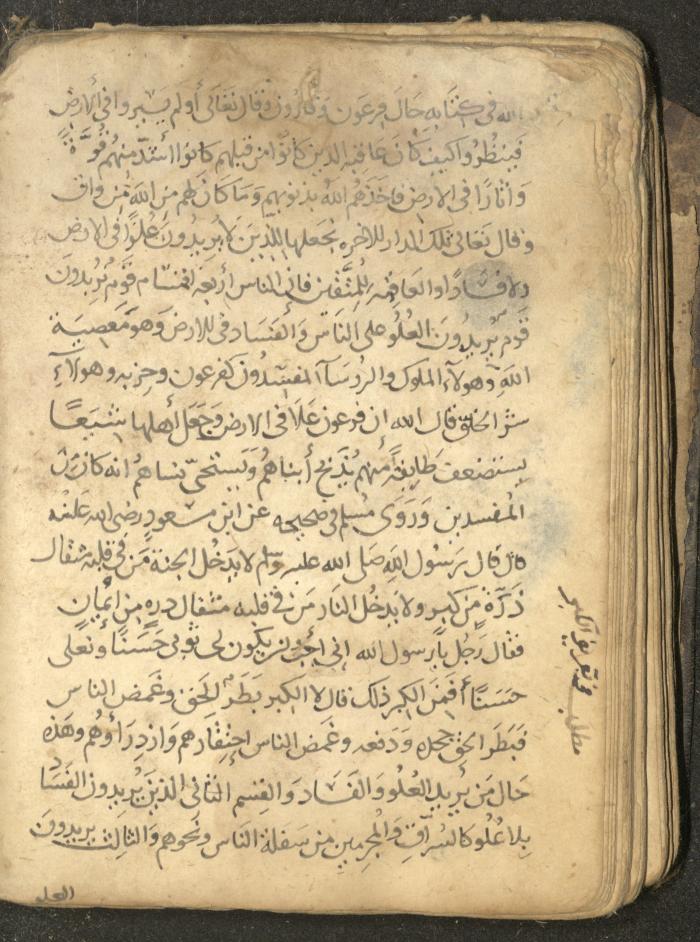 الله في كتابه حال فرعون وقارون وقال تعالى أولم يسيروا في الأرض
فينظروا كيف كان عاقبه الذين كانوا من قبلهم كانوا اشد منهم قوة
وآثارًا في الارض فاخذهم الله بذنوبهم وما كان لهم من الله من واق
وقال تعالى تلك الدار للاخره نجعلها للذين لا يريدون علوًا في الارض
ولا فسادًا والعاقبه للمتقين فان الناس أربعة اقسام قوم يريدون
قوم يريدون العلو على الناس والفساد في للارض وهو معصية
الله وهولآء الملوك والروسآء المفسدون كفرعون وحزبه وهولآءِ
شر الخلق قال الله ان فرعون علا في الارض وجعل أهلها شيعًا
يستضعف طايفةً منهم يُذبح أبناهُم ويستحي نساهُم انه كان من
المفسدين وروى مسلم في صحيحه عن ابن مسعودٍ رضى الله عنه
قال قال رسول الله صلى الله عليه وسلم لا يدخل الجنة من في قلبه مثقال
ذرّة من كبر ولا يدخل النار من في قلبه مثقال دره من ايمان
فقال رجل يا رسول الله انى أحب ان يكون لى ثوبى حسنًا ونعلى
حسنًا أفمن الكبر ذلك قال لا الكبر بطر الحق وغمض الناس
فبطر الحق جحده ودفعه وغمض الناس احتقارهم وازدرأوهم وهذه
حال من يريد العلو والفساد والقسم الثانى الذين يُريدون الفساد
بلا علو كالسُرّاق والمجرمين من سفلة الناس ونحوهم والثالث يريدون
العلو
مطلب في تعريف الكبر